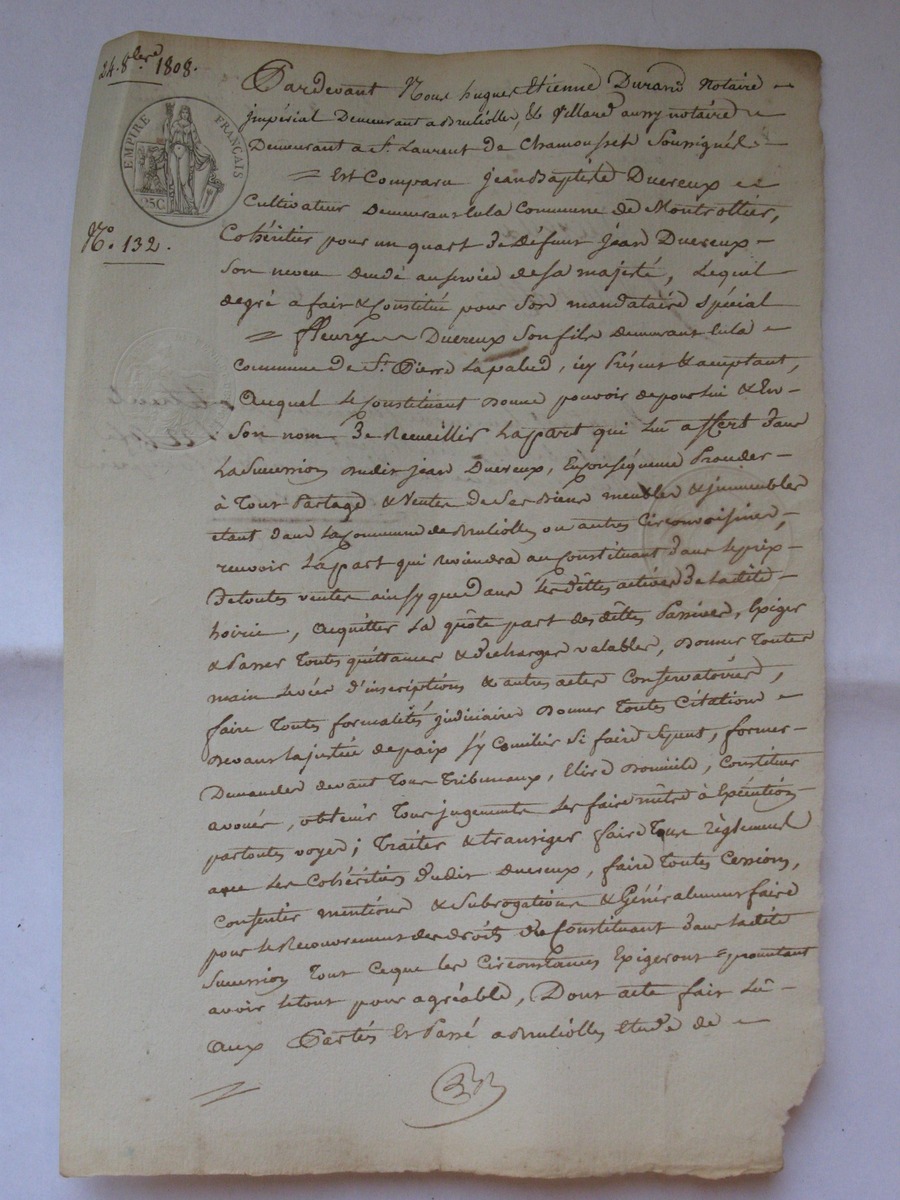 24. 8bre 1808.
EMPIRE FRANÇAIS
25C
N.o 132.
Pardevant Nous hugues Etienne Durand Notaire
impérial Demeurant a Brulliolles, & Villard aussy notaire
Demeurant a St. Laurent de Chamousset Soussignés
Est Comparu jean Baptiste Ducreux
Cultivateur Demeurant en la Commune de Montrottier,
Cohéritier pour un quart de Défunt jean Ducreux
Son neveu décédé au service de sa majesté, Lequel
de gré a fait & Constitué pour Son mandataire spécial
fleury Ducreux Son fils demeurant en la
Commune de St. Pierre Lapalud, icy Présent & acceptant,
Auquel le Constituant Donne pouvoir de pour Lui & En
Son nom De Recueillir La part qui Lui affert dans
La Succession dudit jean Ducreux, En Conséquence Proceder
à Tout Partage & Vente de Ses Biens meubles & jmmeubles
etant dans La Commune de Brulliolles ou autres Circonvoisines,
recevoir La part qui reviendra au Constituant dans le prix
De toutes ventes ainsy que dans Les dêttes actives de Ladite
hoirie, acquitter La quôte part des dêttes Passives, Exiger
& Passer Toutes quittances & décharges valables, Donner Toutes
main Levées d'inscriptions & autres actes Conservatoires,
faire Toutes formalités judiciaires Donner Toutes Citations
devant La justice de paix s'y Concilier Si faire Se peut, former
Demandes devant Tous Tribunaux, Elire Domicile, Constituer
avoués, obtenir Tous jugements Les faire mêtre à Exécution
par toutes voyes; Traiter & transiger faire Tous Règlement
avec Les Cohéritiers dudit Ducreux, faire Toutes Cessions,
Consentir mentions & Subrogations & Généralement faire
pour le Recouvrement des droits du Constituant dans Ladite
Succession Tout Ce que les Circonstances Exigeront promettant
avoir le tout pour agréable, Dont acte fait Lû
aux Parties Et Passé a Brulliolles Etude de